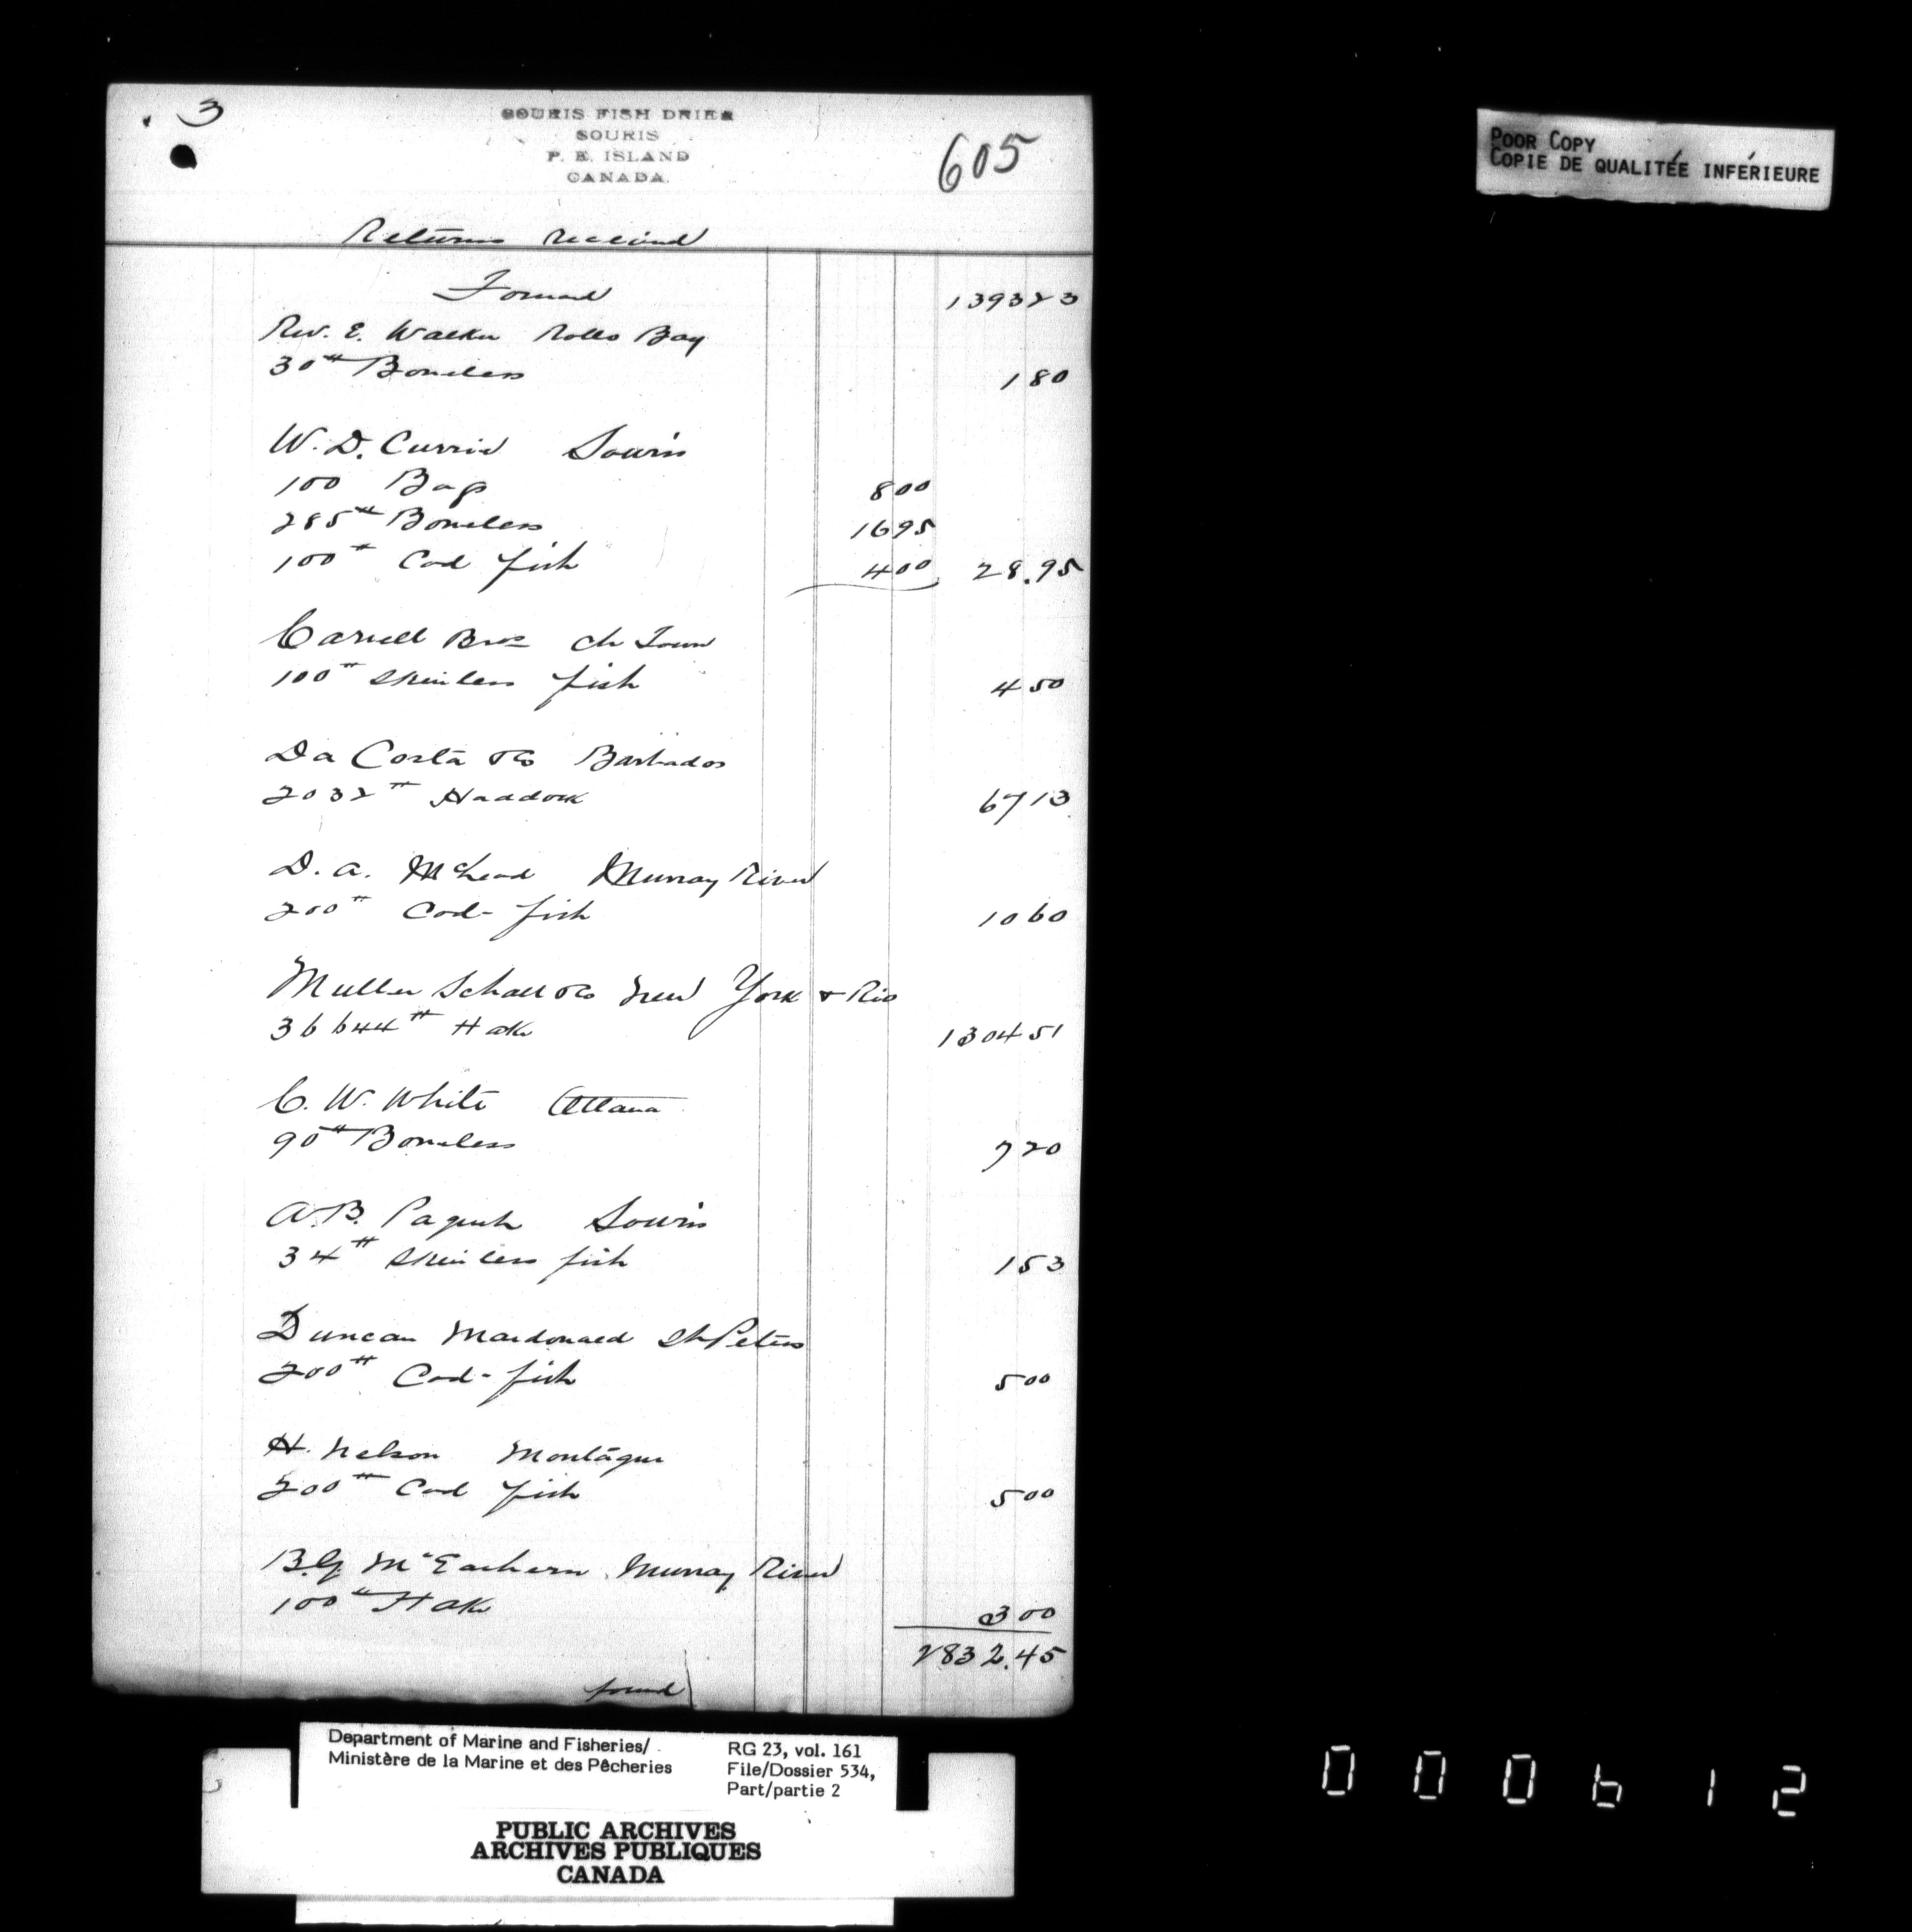 3
SOURIS FISH DRIER
SOURIS
P. E. ISLAND
CANADA.
605
POOR COPY
COPIE DE QUALITÉE INFÉRIEURE
Returns received
Forward 1393 23
Rev. E. Walker Rollo Bay
30# Boneless 1 80
W. D. Currie Souris
100 Bags 8 00
285# Boneless 16 95
100# Cod fish 4 00 28.95
Carvell Bros Ch Town
100# Skinless fish 4 50
Da Costa & Co Barbados
2032# Haddock 67 13
D. A. McLeod Murray River
200# Cod-fish 10 60
Muller Schall & Co New York & Rio
36644# Hake 1304 51
C. W. White Ottawa
90# Boneless 7 20
A. B. Souris
34# Skinless fish 1 53
Duncan Macdonald St Peters
200# Cod-fish 5 00
H. Nelson Montague
200# Cod fish 5 00
B. G. McEachern Murray River
100# Hake 3 00
2832.45
forwd
Department of Marine and Fisheries/
Ministère de la Marine et des Pêcheries
RG 23, vol. 161
File/Dossier 534,
Part/partie 2
PUBLIC ARCHIVES
ARCHIVES PUBLIQUES
CANADA
000612